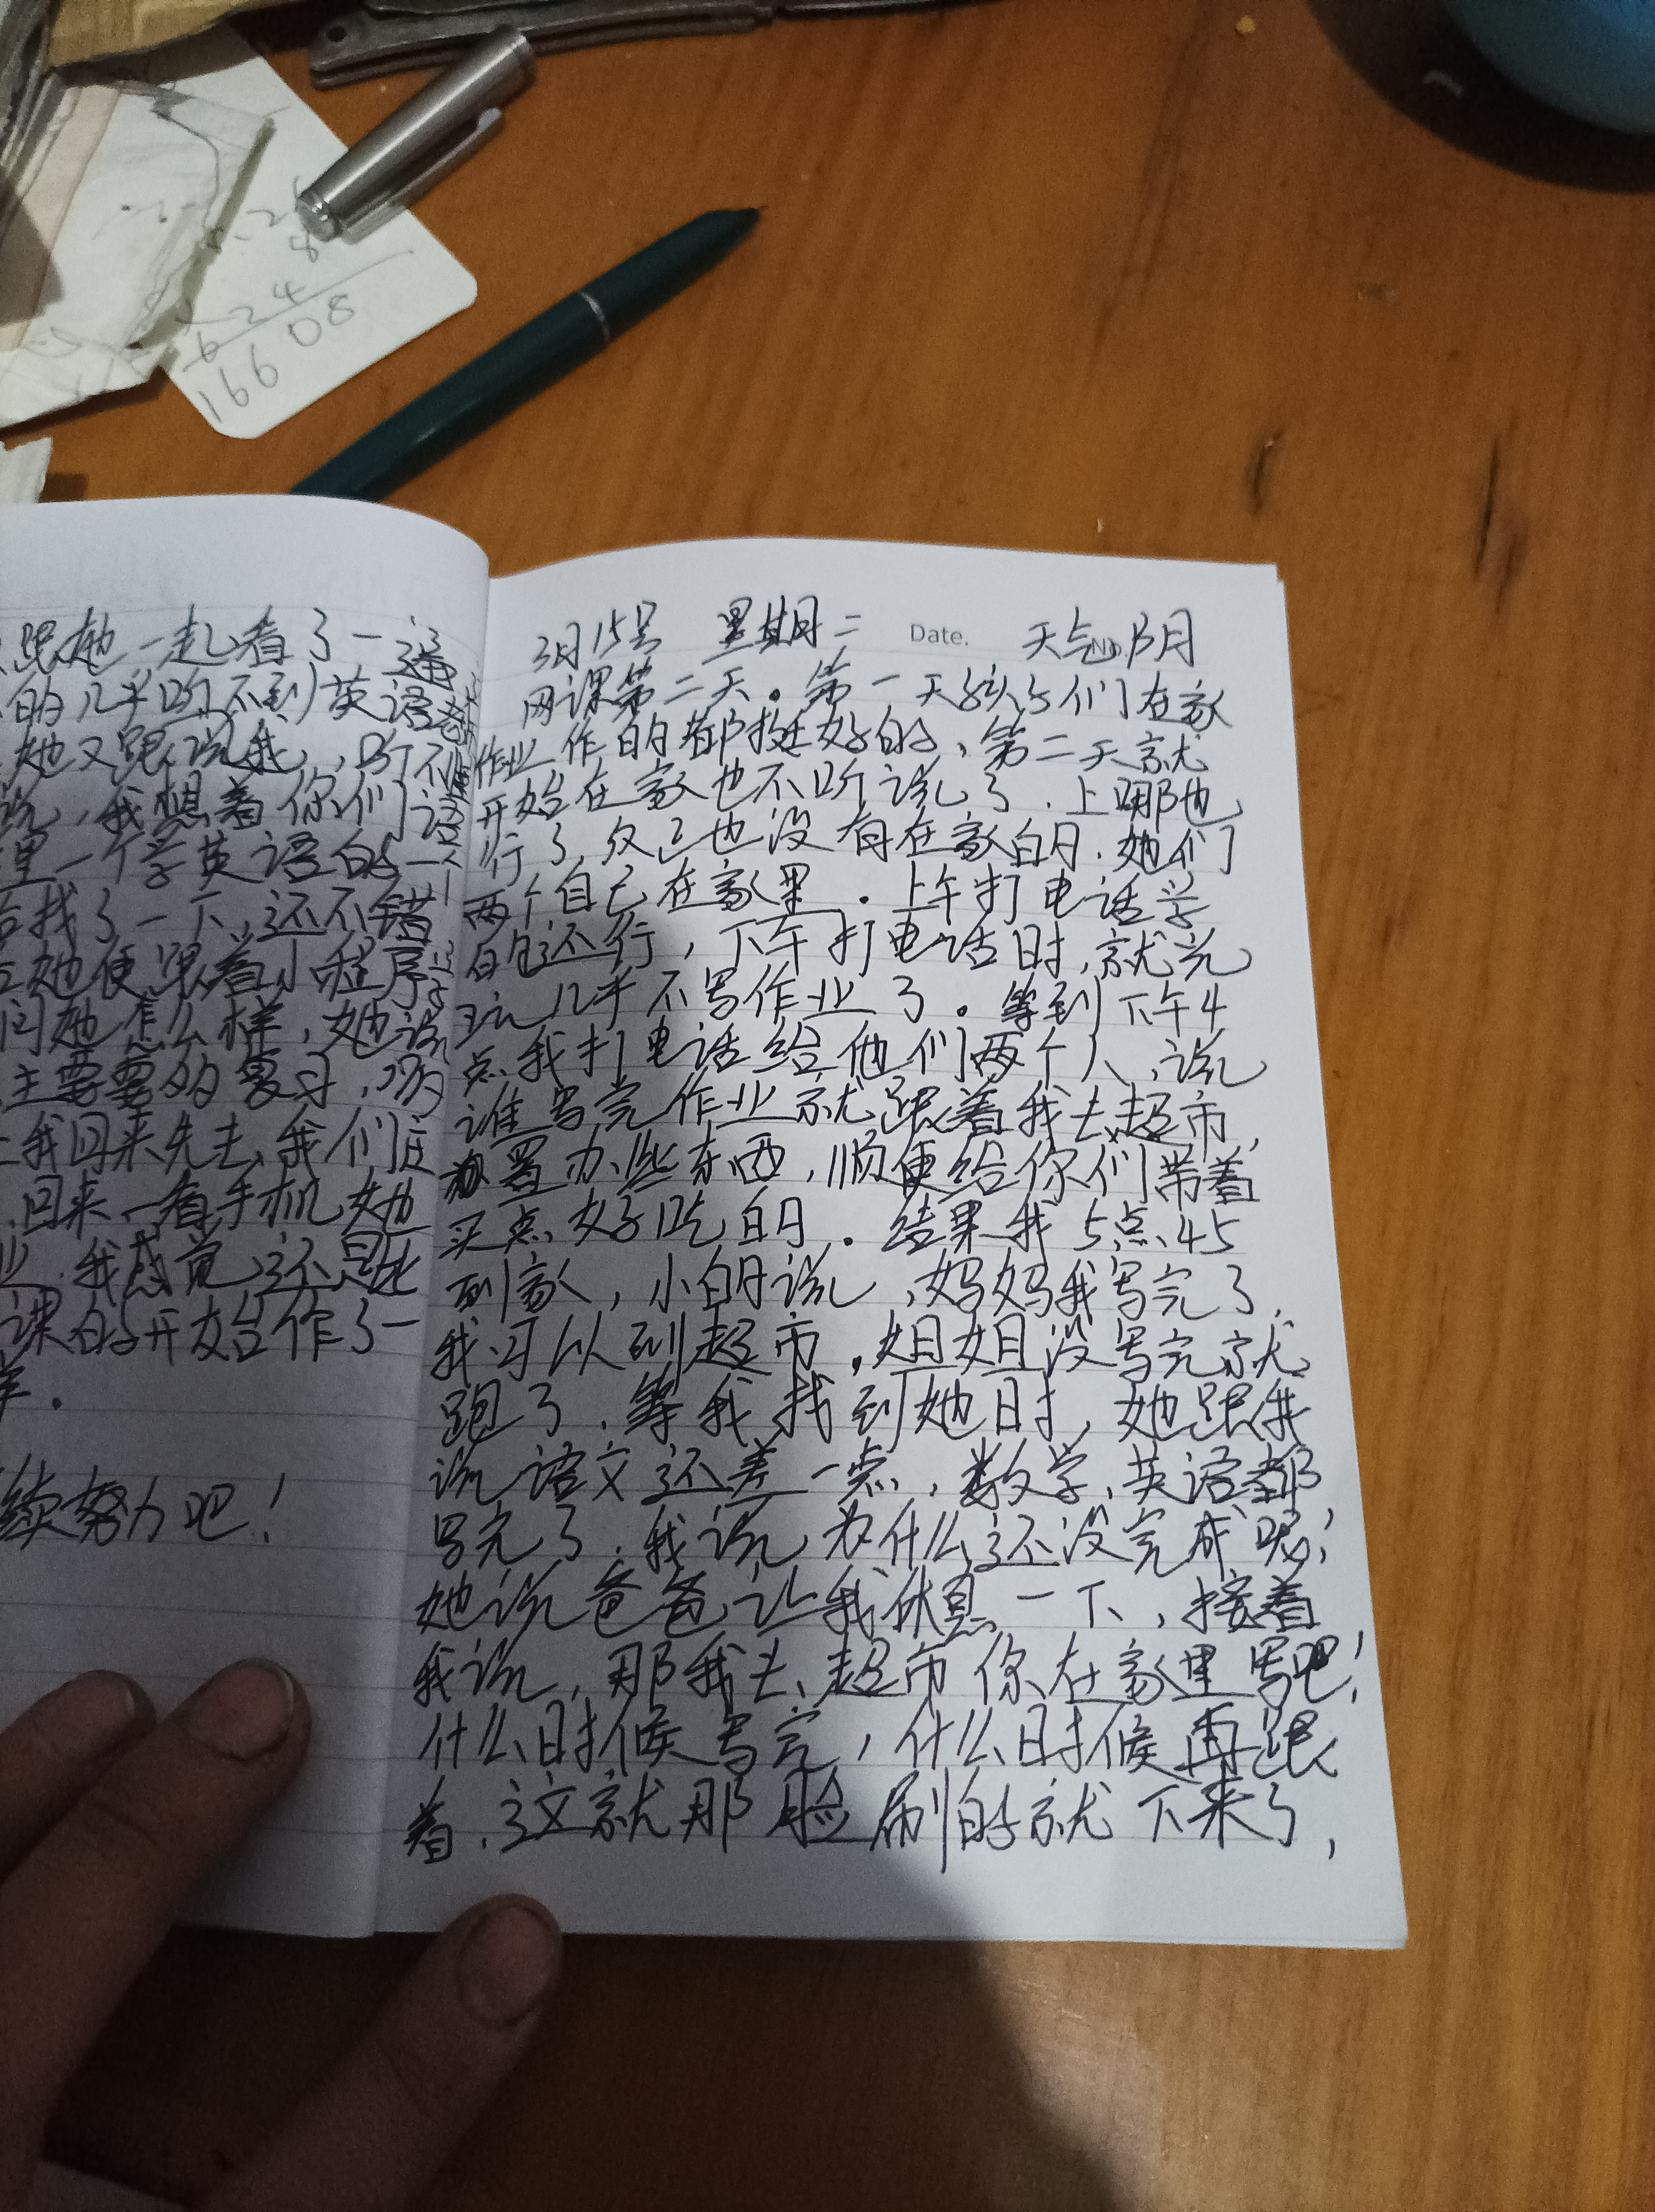 166 08
跟她一起看了一遍
的几乎听不到英语
她又跟说我,听不
说,我想着你们
里一个学英语的
找了一下,还不错
她便跟着小程序
问她怎么样,她说
主要要多复习,
我回来先去我们
回来一看手机她
我感觉还是
课的开始作了一
续努力吧!
Date.
No.
3月15号 星期二 天气阴
网课第二天。第一天孩子们在家
作业作的都挺好的,第二天就
开始在家也不听说了.上哪也
行了,自己也没有在家的.她们
两个自己在家里.上午打电话学
的还行,下午打电话时,就光
玩几乎不写作业了。等到下午4
点我打电话给他们两个人,说
谁写完作业就跟着我去超市,
置办些东西,顺便给你们带着
买点好吃的.结果我5点45
到家,小的说,妈妈我写完了,
我可以到超市,姐姐没写完就
跑了.等我找到她时,她跟我
说语文还差一点,数学,英语都
写完了.我说为什么还没完成呢!
她说爸爸让我休息一下,接着
我说,那我去超市你在家里写吧!
什么时候写完,什么时候再跟
着.这就那脸刷的就下来了,